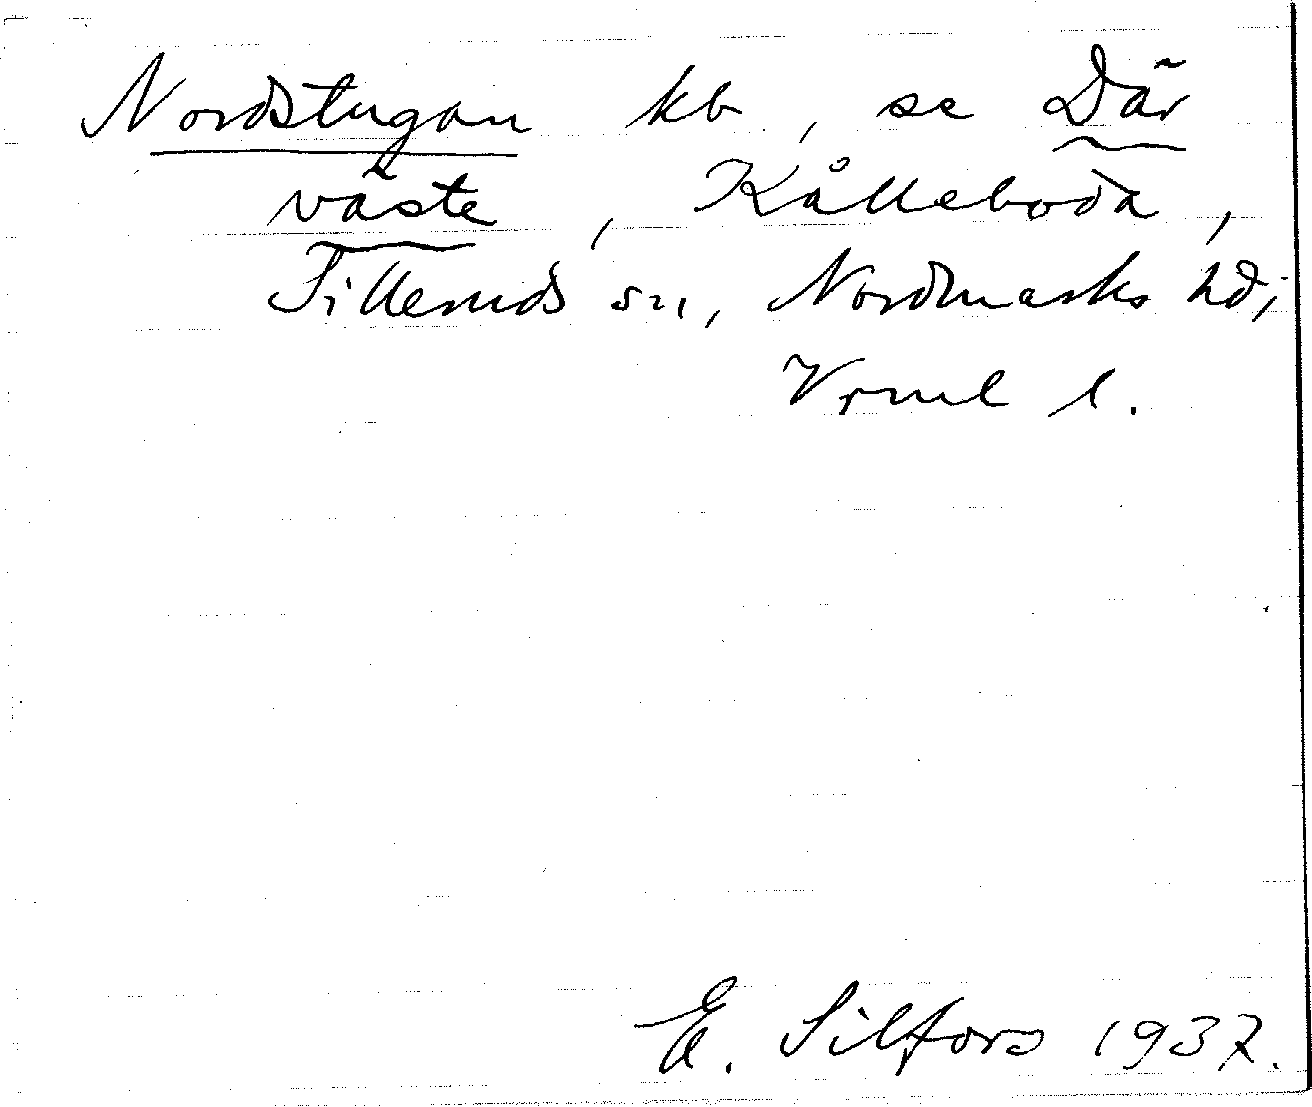 Nordstugan kb, se Där
väste, Kålleboda,
Silleruds sn, Nordmarks hd,
Vrml l.
E. Silfors 1937.